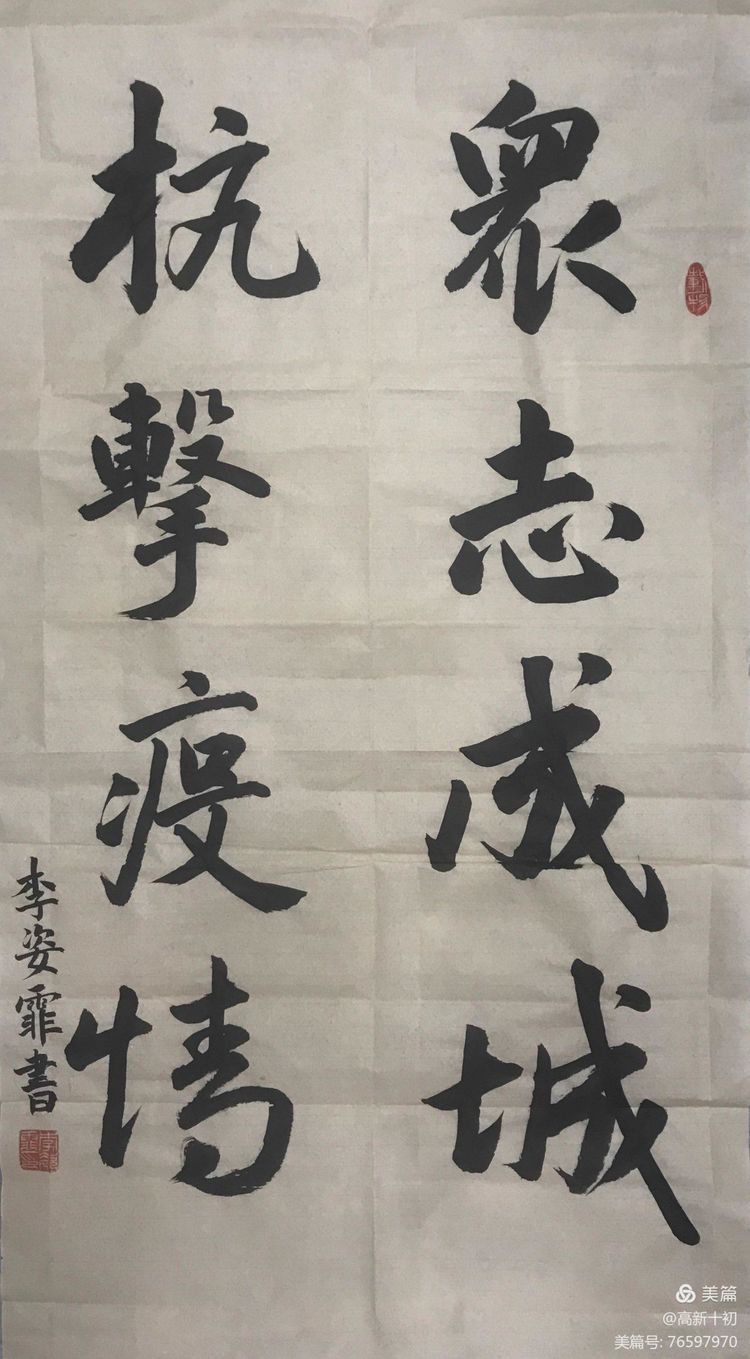 眾志成城
杭擊疫情
李姿霏書
載物
美篇
@高新十初
美篇号: 76597970